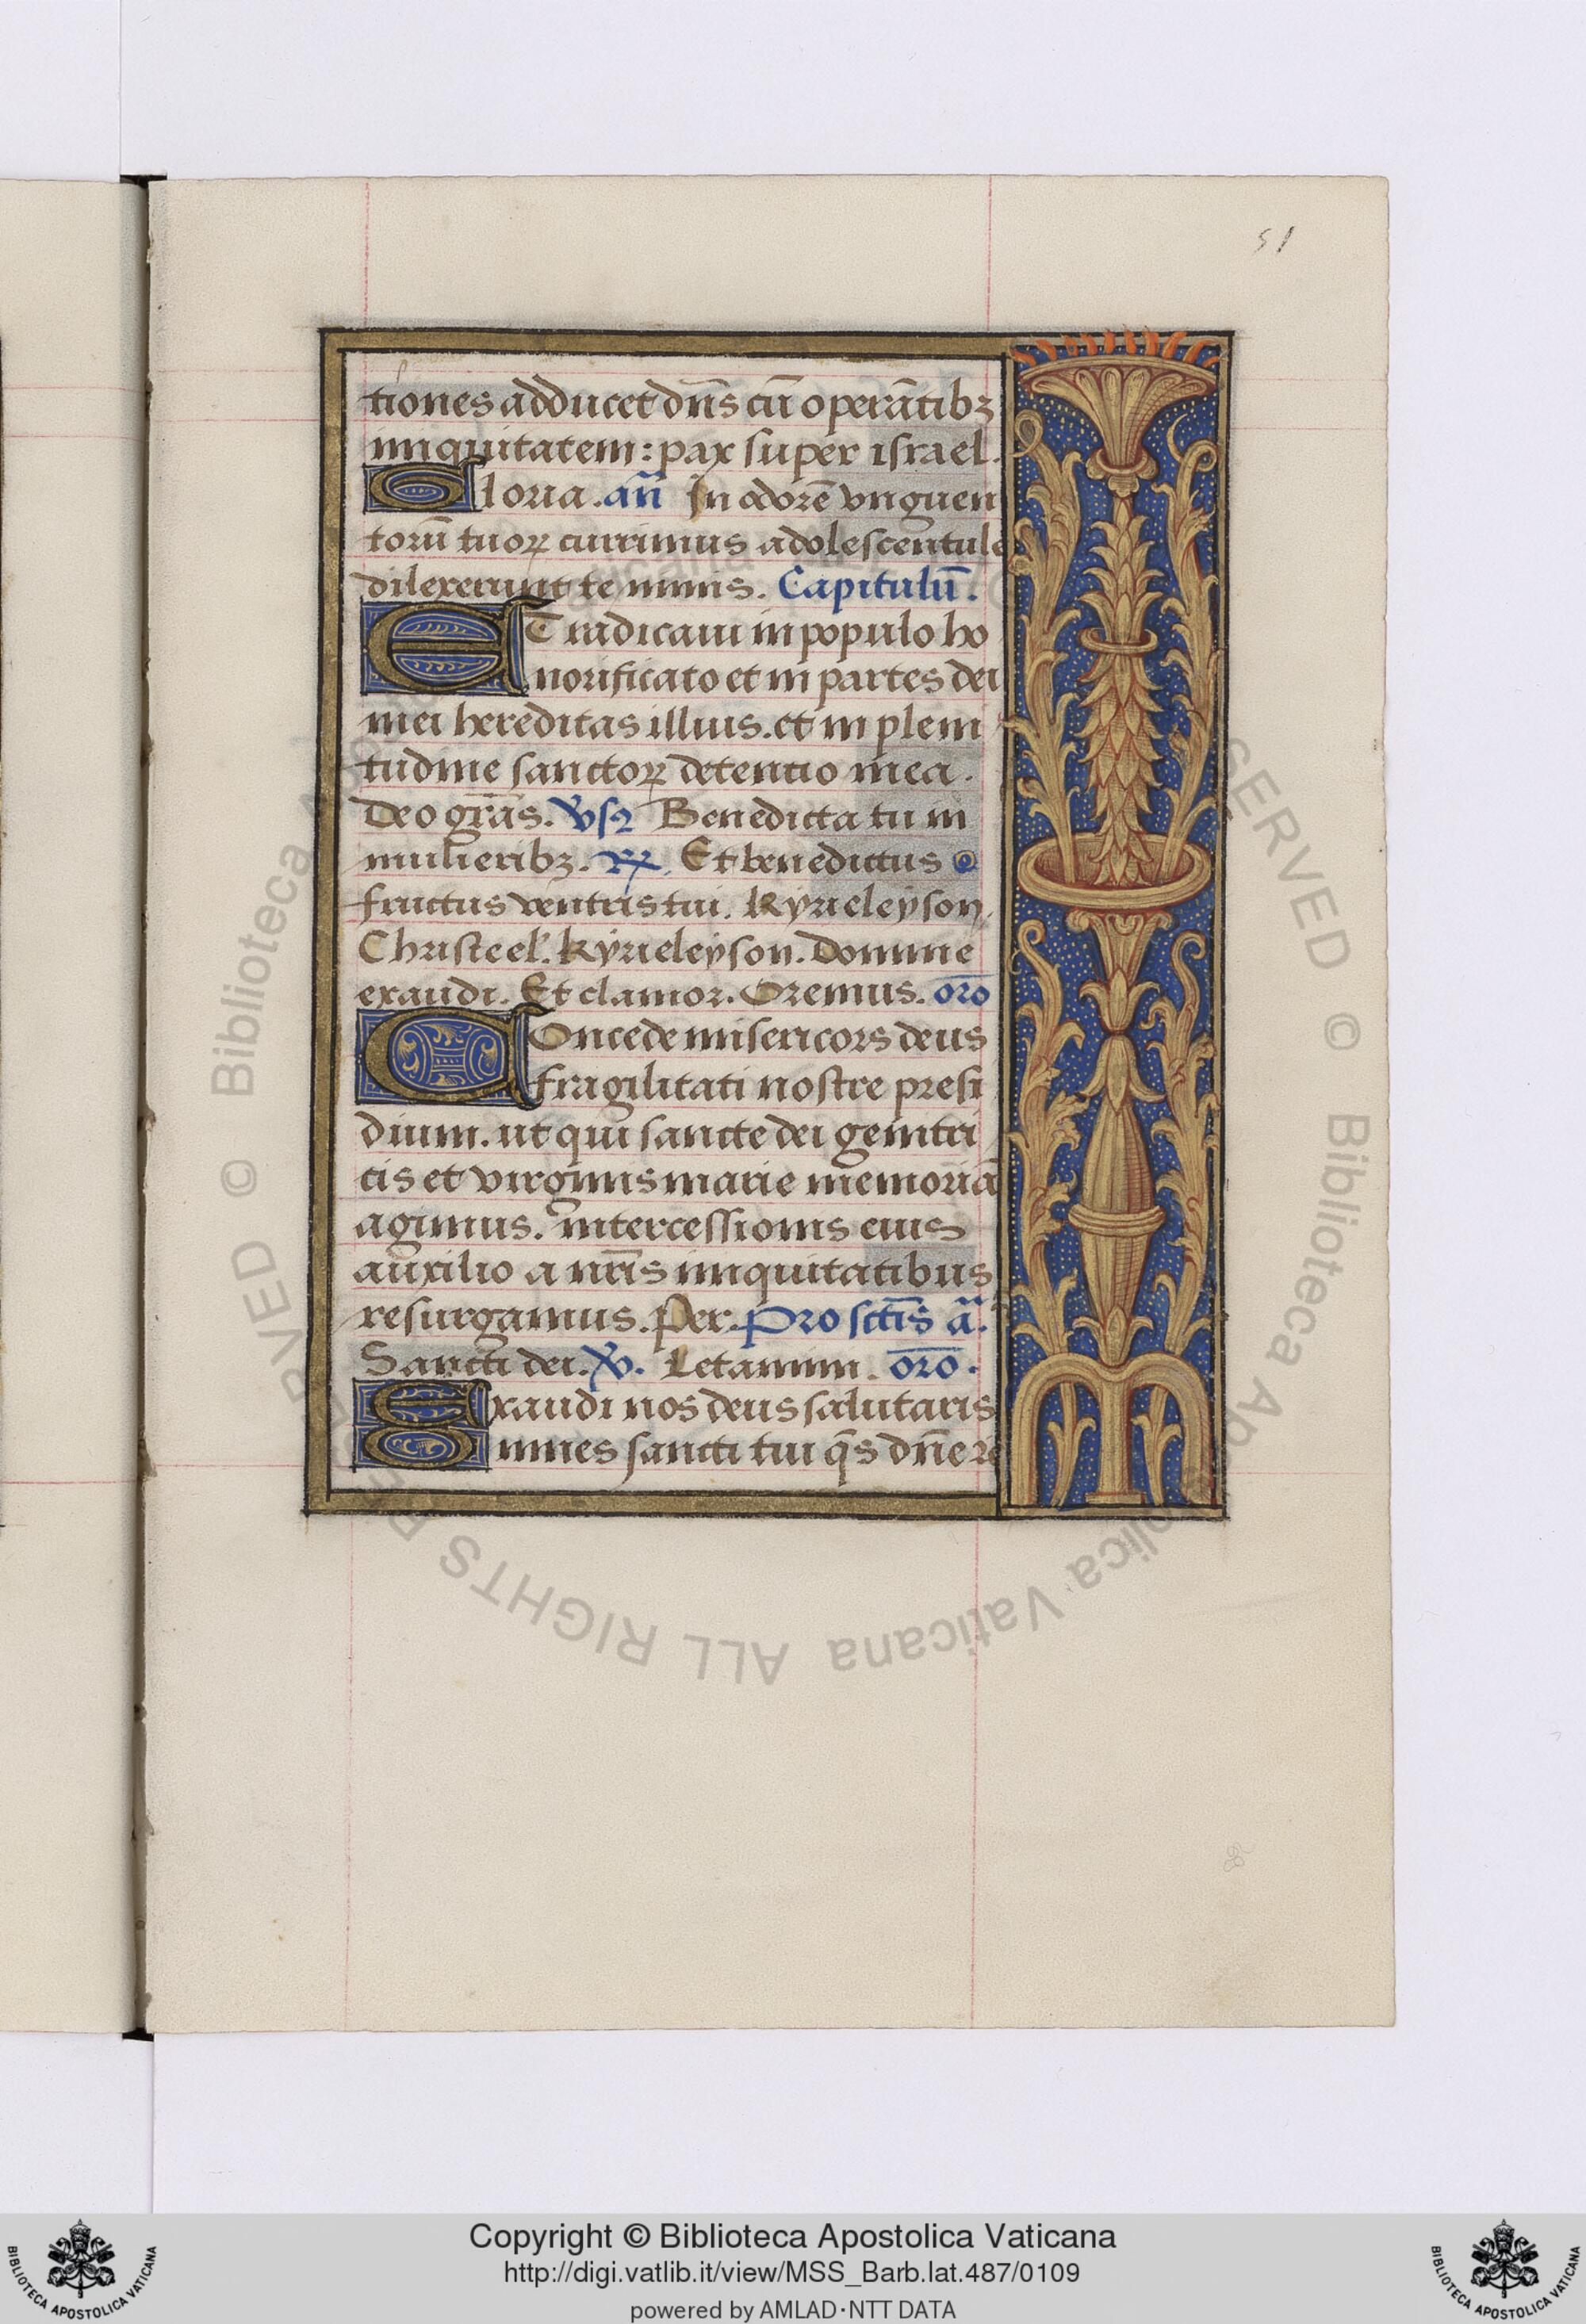 51
tiones adducet dn̄s cū operātibꝫ
iniquitatem: pax super israel.
Gloria. añ In odorē vnguen
torū tuoꝝ currimus adolescentule
dilexerunt te nimis. Capitulū.
ET radicaui in populo ho
norificato et in partes dei
mei hereditas illius. et in pleni
tudine sanctoꝝ detentio mea.
Deo grās. Vſꝰ Benedicta tu in
mulieribꝫ. ℟. Et benedictus
fructus ventris tui. Kyrieleyson.
Christe el'. Kyrieleyson. Domine
exaudi. Et clamor. Oremus. or̄o
COncede misericors deus
fragilitati nostre presi
dium. ut qui sancte dei genitri
cis et virginis marie memoriā
agimus. intercessionis eius
auxilio a nr̄is iniquitatibus
resurgamus. Per. Pro sctīs ā.
Sancti dei. ℣. Letamini. or̄o.
Exaudi nos deus salutaris
Omnes sancti tui q̄s dn̄e re
© Biblioteca Apostolica Vaticana ALL RIGHTS RESERVED
Copyright © Biblioteca Apostolica Vaticana
http://digi.vatlib.it/view/MSS_Barb.lat.487/0109
powered by AMLAD·NTT DATA
BIBLIOTECA APOSTOLICA VATICANA
BIBLIOTECA APOSTOLICA VATICANA